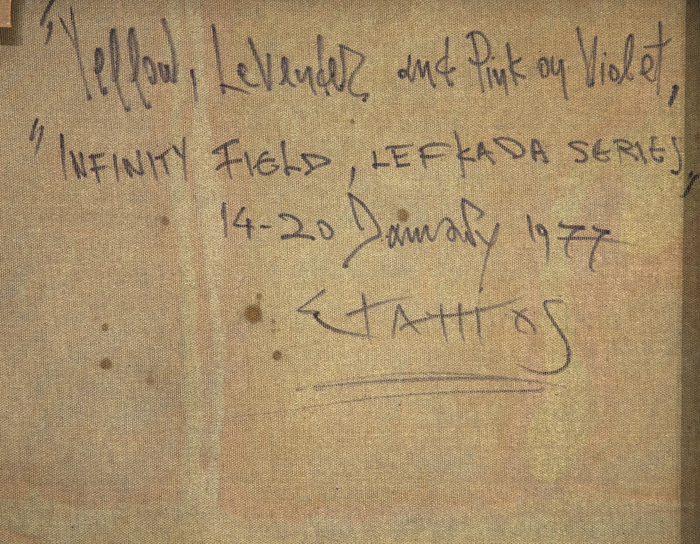 "Yellow, Levender, and Pink on Violet,
"INFINITY FIELD, LEFKADA SERIES,"
14-20 January 1977
STAMOS